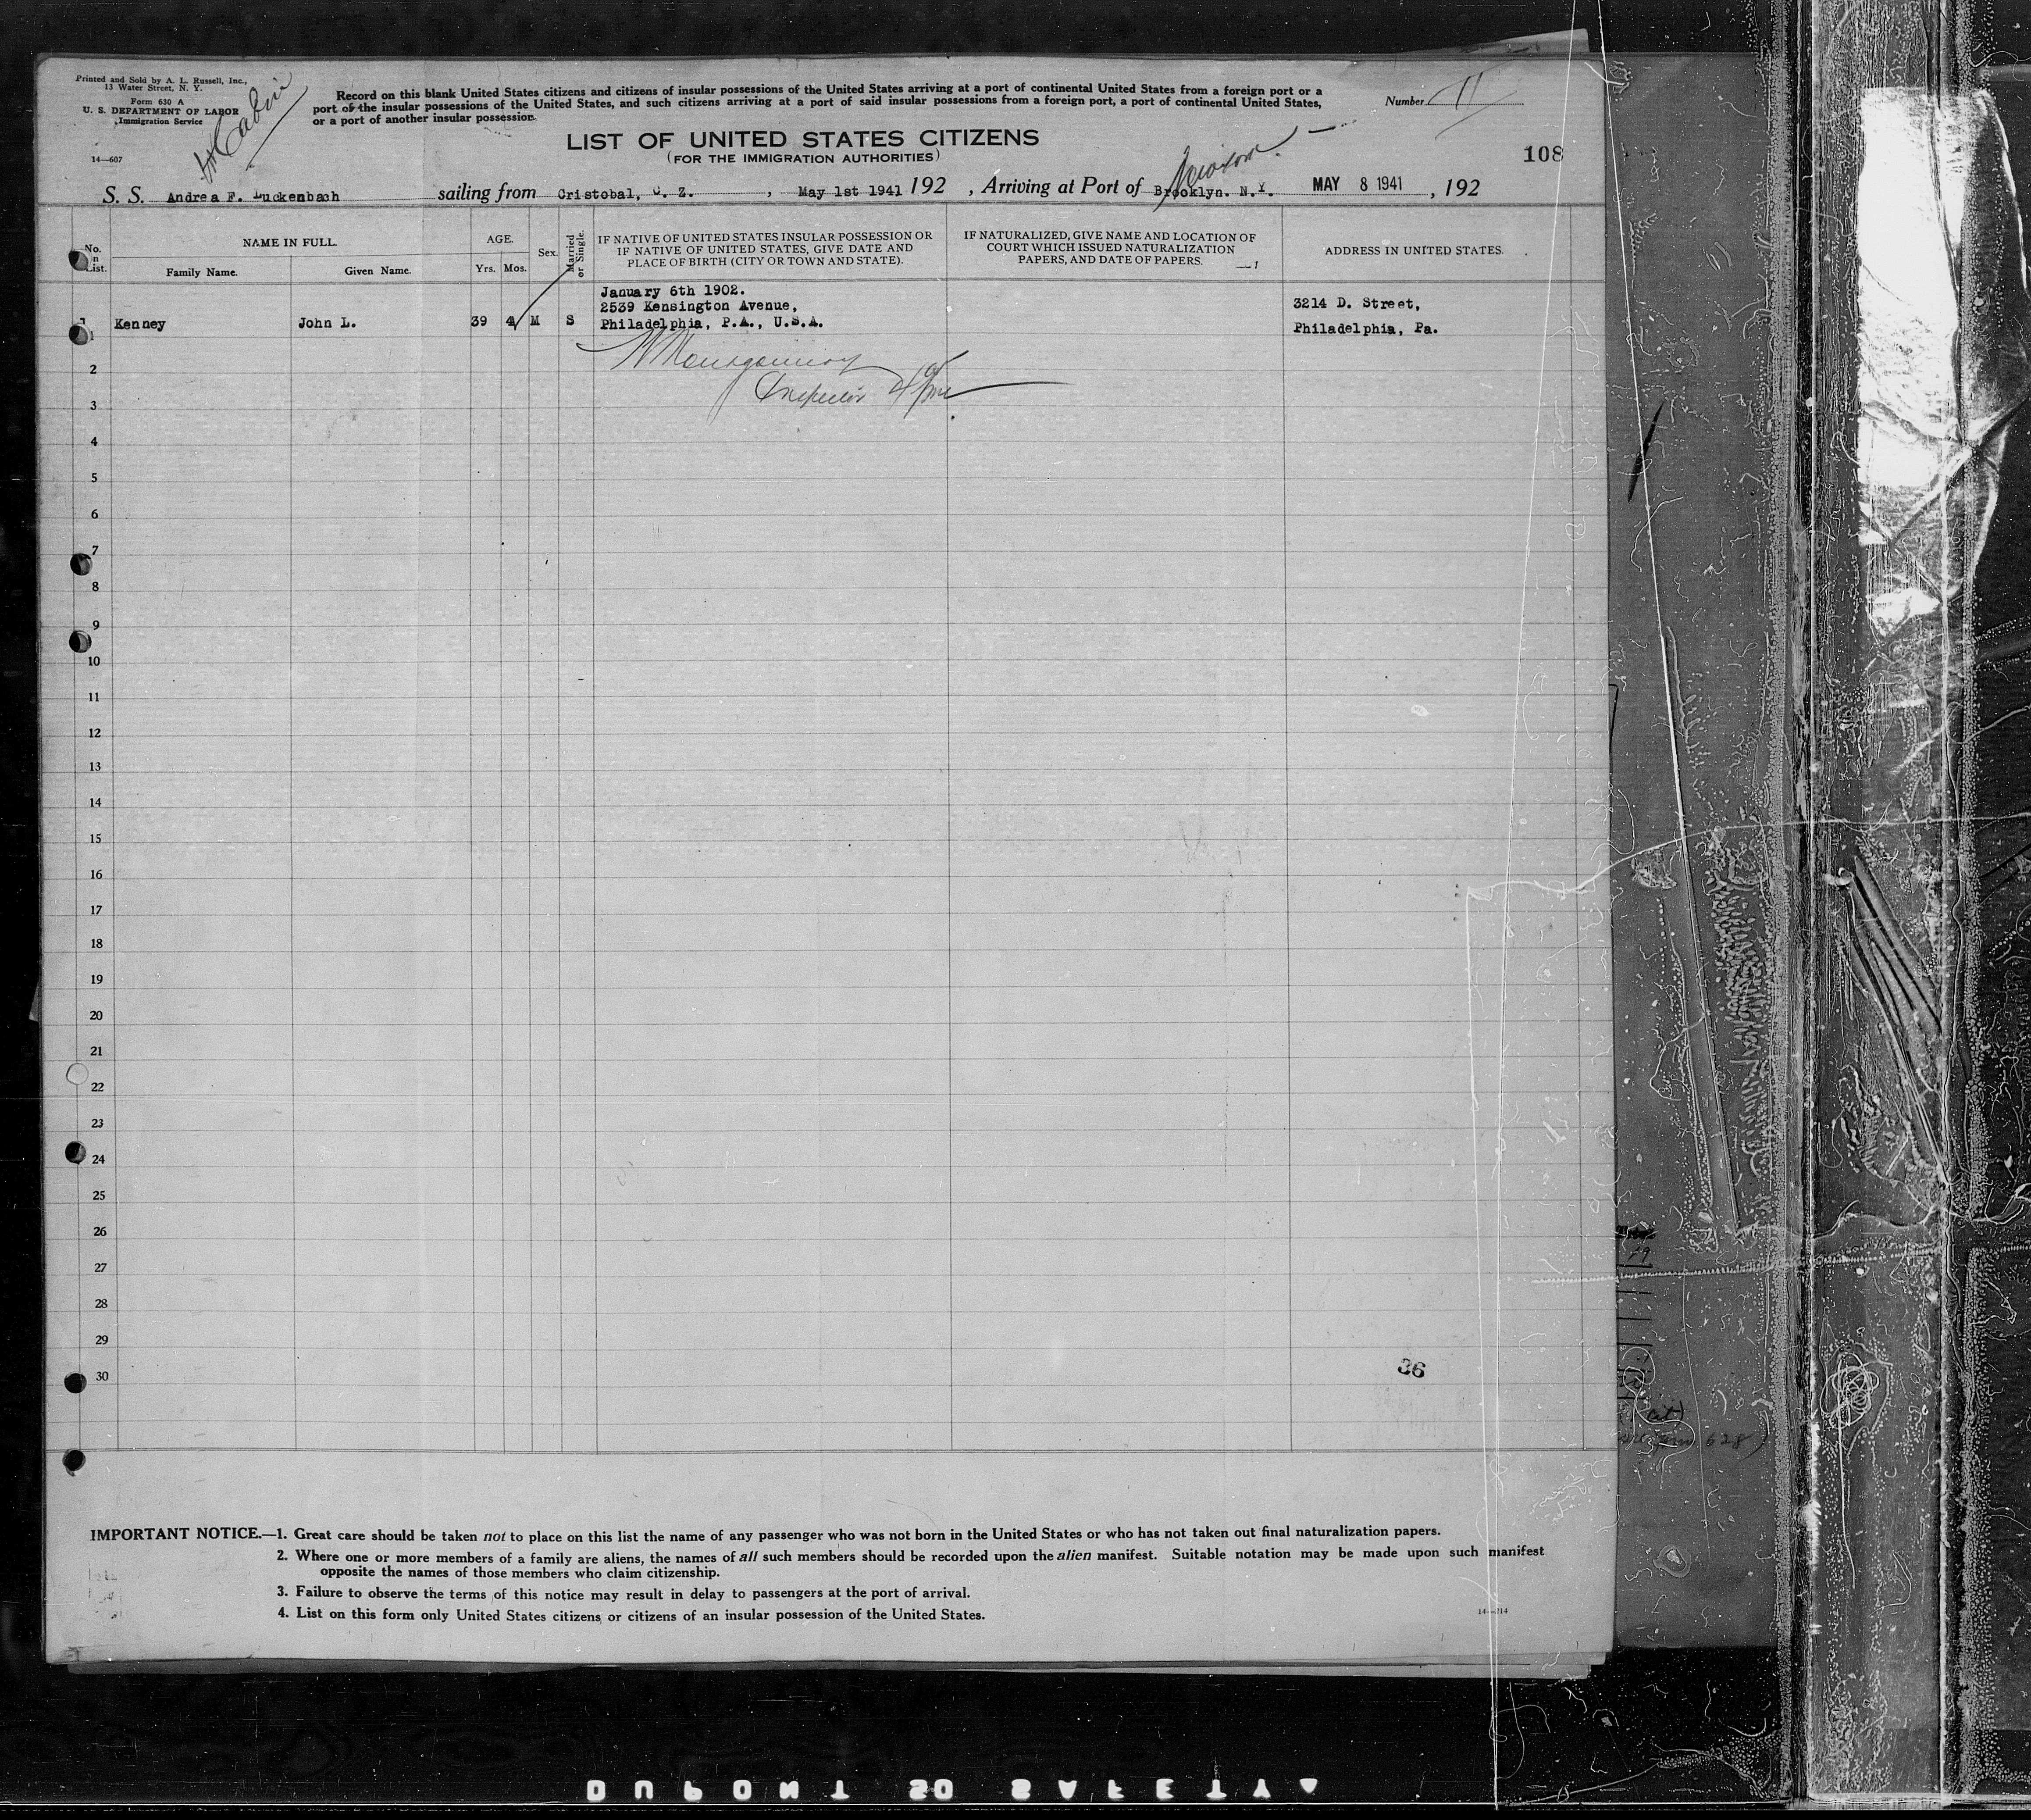 Printed and Sold by A. L. Russell, Inc.,
13 Water Street, N. Y.
Form 630 A
U. S. DEPARTMENT OF LABOR
Immigration Service
14—607
Cabin
Record on this blank United States citizens and citizens of insular possessions of the United States arriving at a port of continental United States from a foreign port or a
port of the insular possessions of the United States, and such citizens arriving at a port of said insular possessions from a foreign port, a port of continental United States,
or a port of another insular possession.
Number 11
LIST OF UNITED STATES CITIZENS
(FOR THE IMMIGRATION AUTHORITIES)
108
S. S. Andrea F. Luckenbach sailing from Cristobal, C. Z. , May 1st 1941 192 , Arriving at Port of Brooklyn. N.Y. MAY 8 1941 , 192
No. on List.
NAME IN FULL.
Family Name.
Given Name.
AGE.
Yrs.
Mos.
Sex.
Married or Single.
IF NATIVE OF UNITED STATES INSULAR POSSESSION OR
IF NATIVE OF UNITED STATES, GIVE DATE AND
PLACE OF BIRTH (CITY OR TOWN AND STATE).
IF NATURALIZED, GIVE NAME AND LOCATION OF
COURT WHICH ISSUED NATURALIZATION
PAPERS, AND DATE OF PAPERS.
ADDRESS IN UNITED STATES.
January 6th 1902.
2539 Kensington Avenue,
3214 D. Street,
1 Kenney John L. 39 4 M S Philadelphia, P.A., U.S.A. Philadelphia, Pa.
Montgomery
2
Inspector
3
4
5
6
7
8
9
10
11
12
13
14
15
16
17
18
19
20
21
22
23
24
25
26
27
28
29
30
36
IMPORTANT NOTICE.—1. Great care should be taken not to place on this list the name of any passenger who was not born in the United States or who has not taken out final naturalization papers.
2. Where one or more members of a family are aliens, the names of all such members should be recorded upon the alien manifest. Suitable notation may be made upon such manifest
opposite the names of those members who claim citizenship.
3. Failure to observe the terms of this notice may result in delay to passengers at the port of arrival.
4. List on this form only United States citizens or citizens of an insular possession of the United States.
14—214
DUPONT SO SAFETY